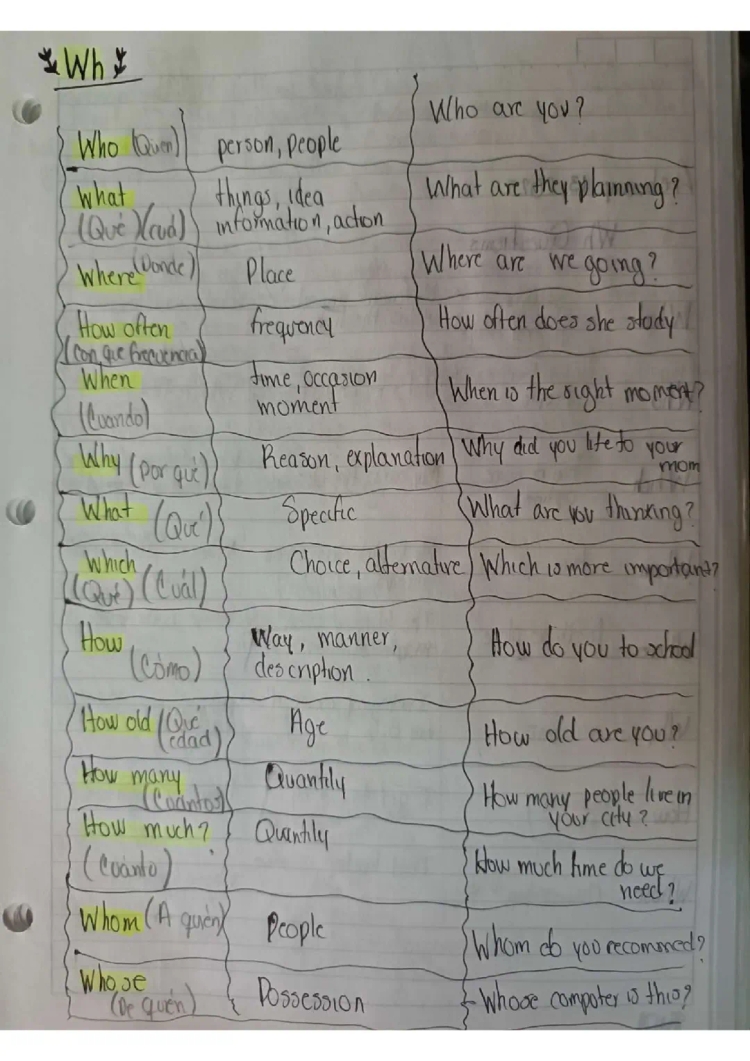 Wh
Who (Quien) person, people Who are you?
What things, idea What are they plainning?
(Qué) (cuál) information, action
Where (Donde) Place Where are we going?
How often frequency How often does she study
(con que frecuencia)
When time, occasion When is the right moment?
(Cuando) moment
Why (por qué) Reason, explanation Why did you lite to your
mom
What (Qué) Specific What are you thinking?
Which Choice, alternative Which is more important?
(Qué) (Cuál)
How Way, manner, How do you to school
(Cómo) description.
How old (Qué Age How old are you?
edad)
How many Quantily How many people live in
(Cuantos) your city?
How much? Quantily
(Cuánto) How much time do we
need?
Whom (A quién) People Whom do you recommed?
Whose Possession Whose computer is this?
(De quién)